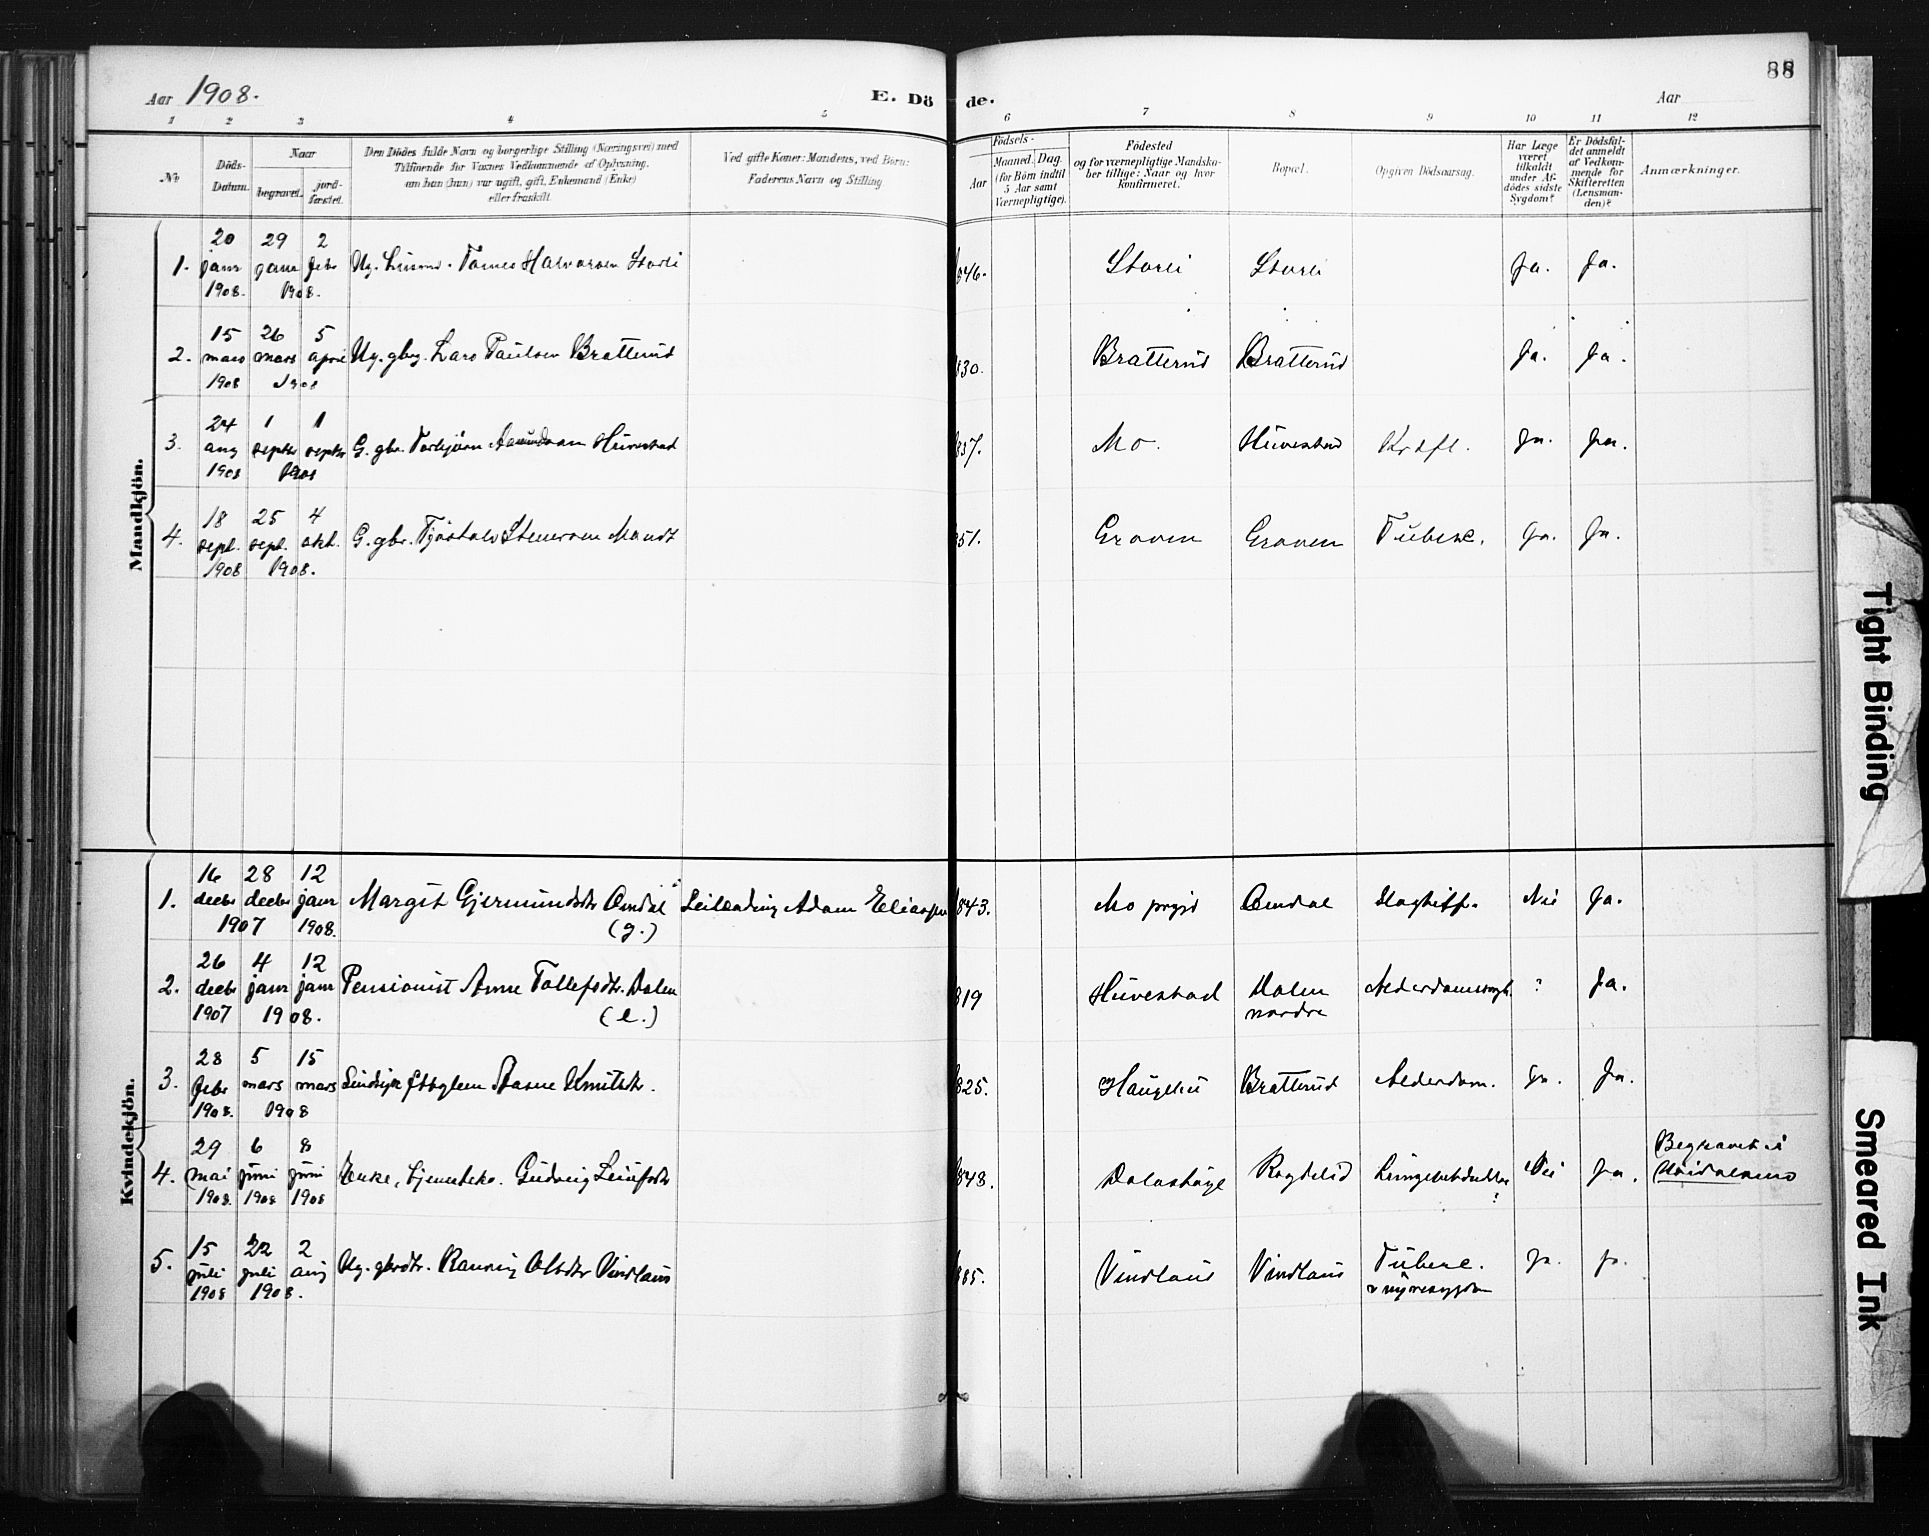 88
Aar 1908.
E. Dö de.
Aar
1 2 3 4 5 6 7 8 9 10 11 12
No
Döds-Datum.
Naar
begravet.
jordfæstet.
Den Dödes fulde Navn og borgerlige Stilling (Næringsvei) med
Tilföiende for Voxnes Vedkommende af Oplysning,
om han (hun) var ugift, gift, Enkemand (Enke)
eller fraskilt.
Ved gifte Koner: Mandens, ved Börn:
Faderens Navn og Stilling
Födsels-
Aar
Maaned. Dag.
(for Börn indtil
5 Aar samt
Værnepligtige).
Födested
og for værnepligtige Mandska-
ber tillige: Naar og hvor
konfirmeret.
Bopæl.
Opgiven Dödsaarsag.
Har Læge
været
tilkaldt
under Af-
dödes sidste
Sygdom?
Er Dödsfal-
det anmeldt
af Vedkom-
mende for
Skifteretten
(Lensman-
den)?
Anmærkninger.
Mandkjön.
1. 20 janr 1908. 29 janr 2 febr 1908. Ug. Tomes Halvorsen Storli 846. Storli Storli Ja. Ja.
2. 15 mars 1908 26 mars 5 april 1908 Ug. gbrg. Lars Paulsen Bratterud 830. Bratterud Bratterud Ja. Ja.
3. 24 aug 1908 1 septbr 1 septbr 1908 G. gbr. Torbjörn Aamundsen Huvestad 837. Mo. Huvestad Kræft. Ja. Ja.
4. 18 sept. 1908 25 sept. 4 okt. 1908. G. gbr. Tjöstolv Stenersen Mandt 851. Groven Groven Tuberc. Ja. Ja.
Kvindekjön.
1. 16 decbr 28 decbr 1907 12 janr 1908. Margit Gjermundsdtr Omdal (g.) Leilending Adam Eliassen 843. Mo prgjd Omdal Slagtilf. Nei Ja.
2. 26 decbr 1907 4 janr 12 janr 1908. Pensionist Anne Tollefsdtr. Dalen (e.) 819 Huvestad Dalen nordre ? Ja.
3. 28 febr 1908. 5 mars 15 mars 1908 Aasne Knutsdtr. 825. Haugelid Bratterud Alderdom. Ja. Ja.
4. 29 mai 1908. 6 juni 1908 8 juni 1908 Enke, Gudveig Leiufsdtr 848. Dalastöyl Rogdelid ? Nei Ja. Begravet i Höidalsmo
5. 15 juli 1908 22 juli 2 aug 1908. Ug. gbrdtr. Ranveig Olsdtr Vindlaus 885. Vindlaus Vindlaus Tuberc. nyresygdom Ja. Ja.
Tight Binding
Smeared Ink